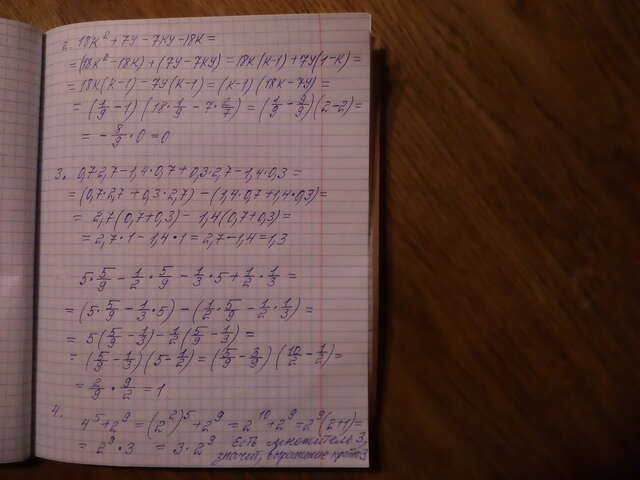 2. 18к² + 7у - 7ку - 18к =
= (18к² - 18к) + (7у - 7ку) = 18к(к-1) + 7у(1-к) =
= 18к(к-1) - 7у(к-1) = (к-1)(18к-7у) =
= (1/9 - 1)(18·1/9 - 7·2/7) = (1/9 - 9/9)(2-2) =
= - 8/9 · 0 = 0
3. 0,7·2,7 - 1,4·0,7 + 0,3·2,7 - 1,4·0,3 =
= (0,7·2,7 + 0,3·2,7) - (1,4·0,7 + 1,4·0,3) =
= 2,7(0,7+0,3) - 1,4(0,7+0,3) =
= 2,7·1 - 1,4·1 = 2,7 - 1,4 = 1,3
5·5/9 - 1/2·5/9 - 1/3·5 + 1/2·1/3 =
= (5·5/9 - 1/3·5) - (1/2·5/9 - 1/2·1/3) =
= 5(5/9 - 1/3) - 1/2(5/9 - 1/3) =
= (5/9 - 1/3)(5 - 1/2) = (5/9 - 3/9)(10/2 - 1/2) =
= 2/9 · 9/2 = 1
4. 4⁵ + 2⁹ = (2²)⁵ + 2⁹ = 2¹⁰ + 2⁹ = 2⁹(2+1) =
= 2⁹·3 = 3·2⁹ есть множитель 3,
значит, выражение кратно 3